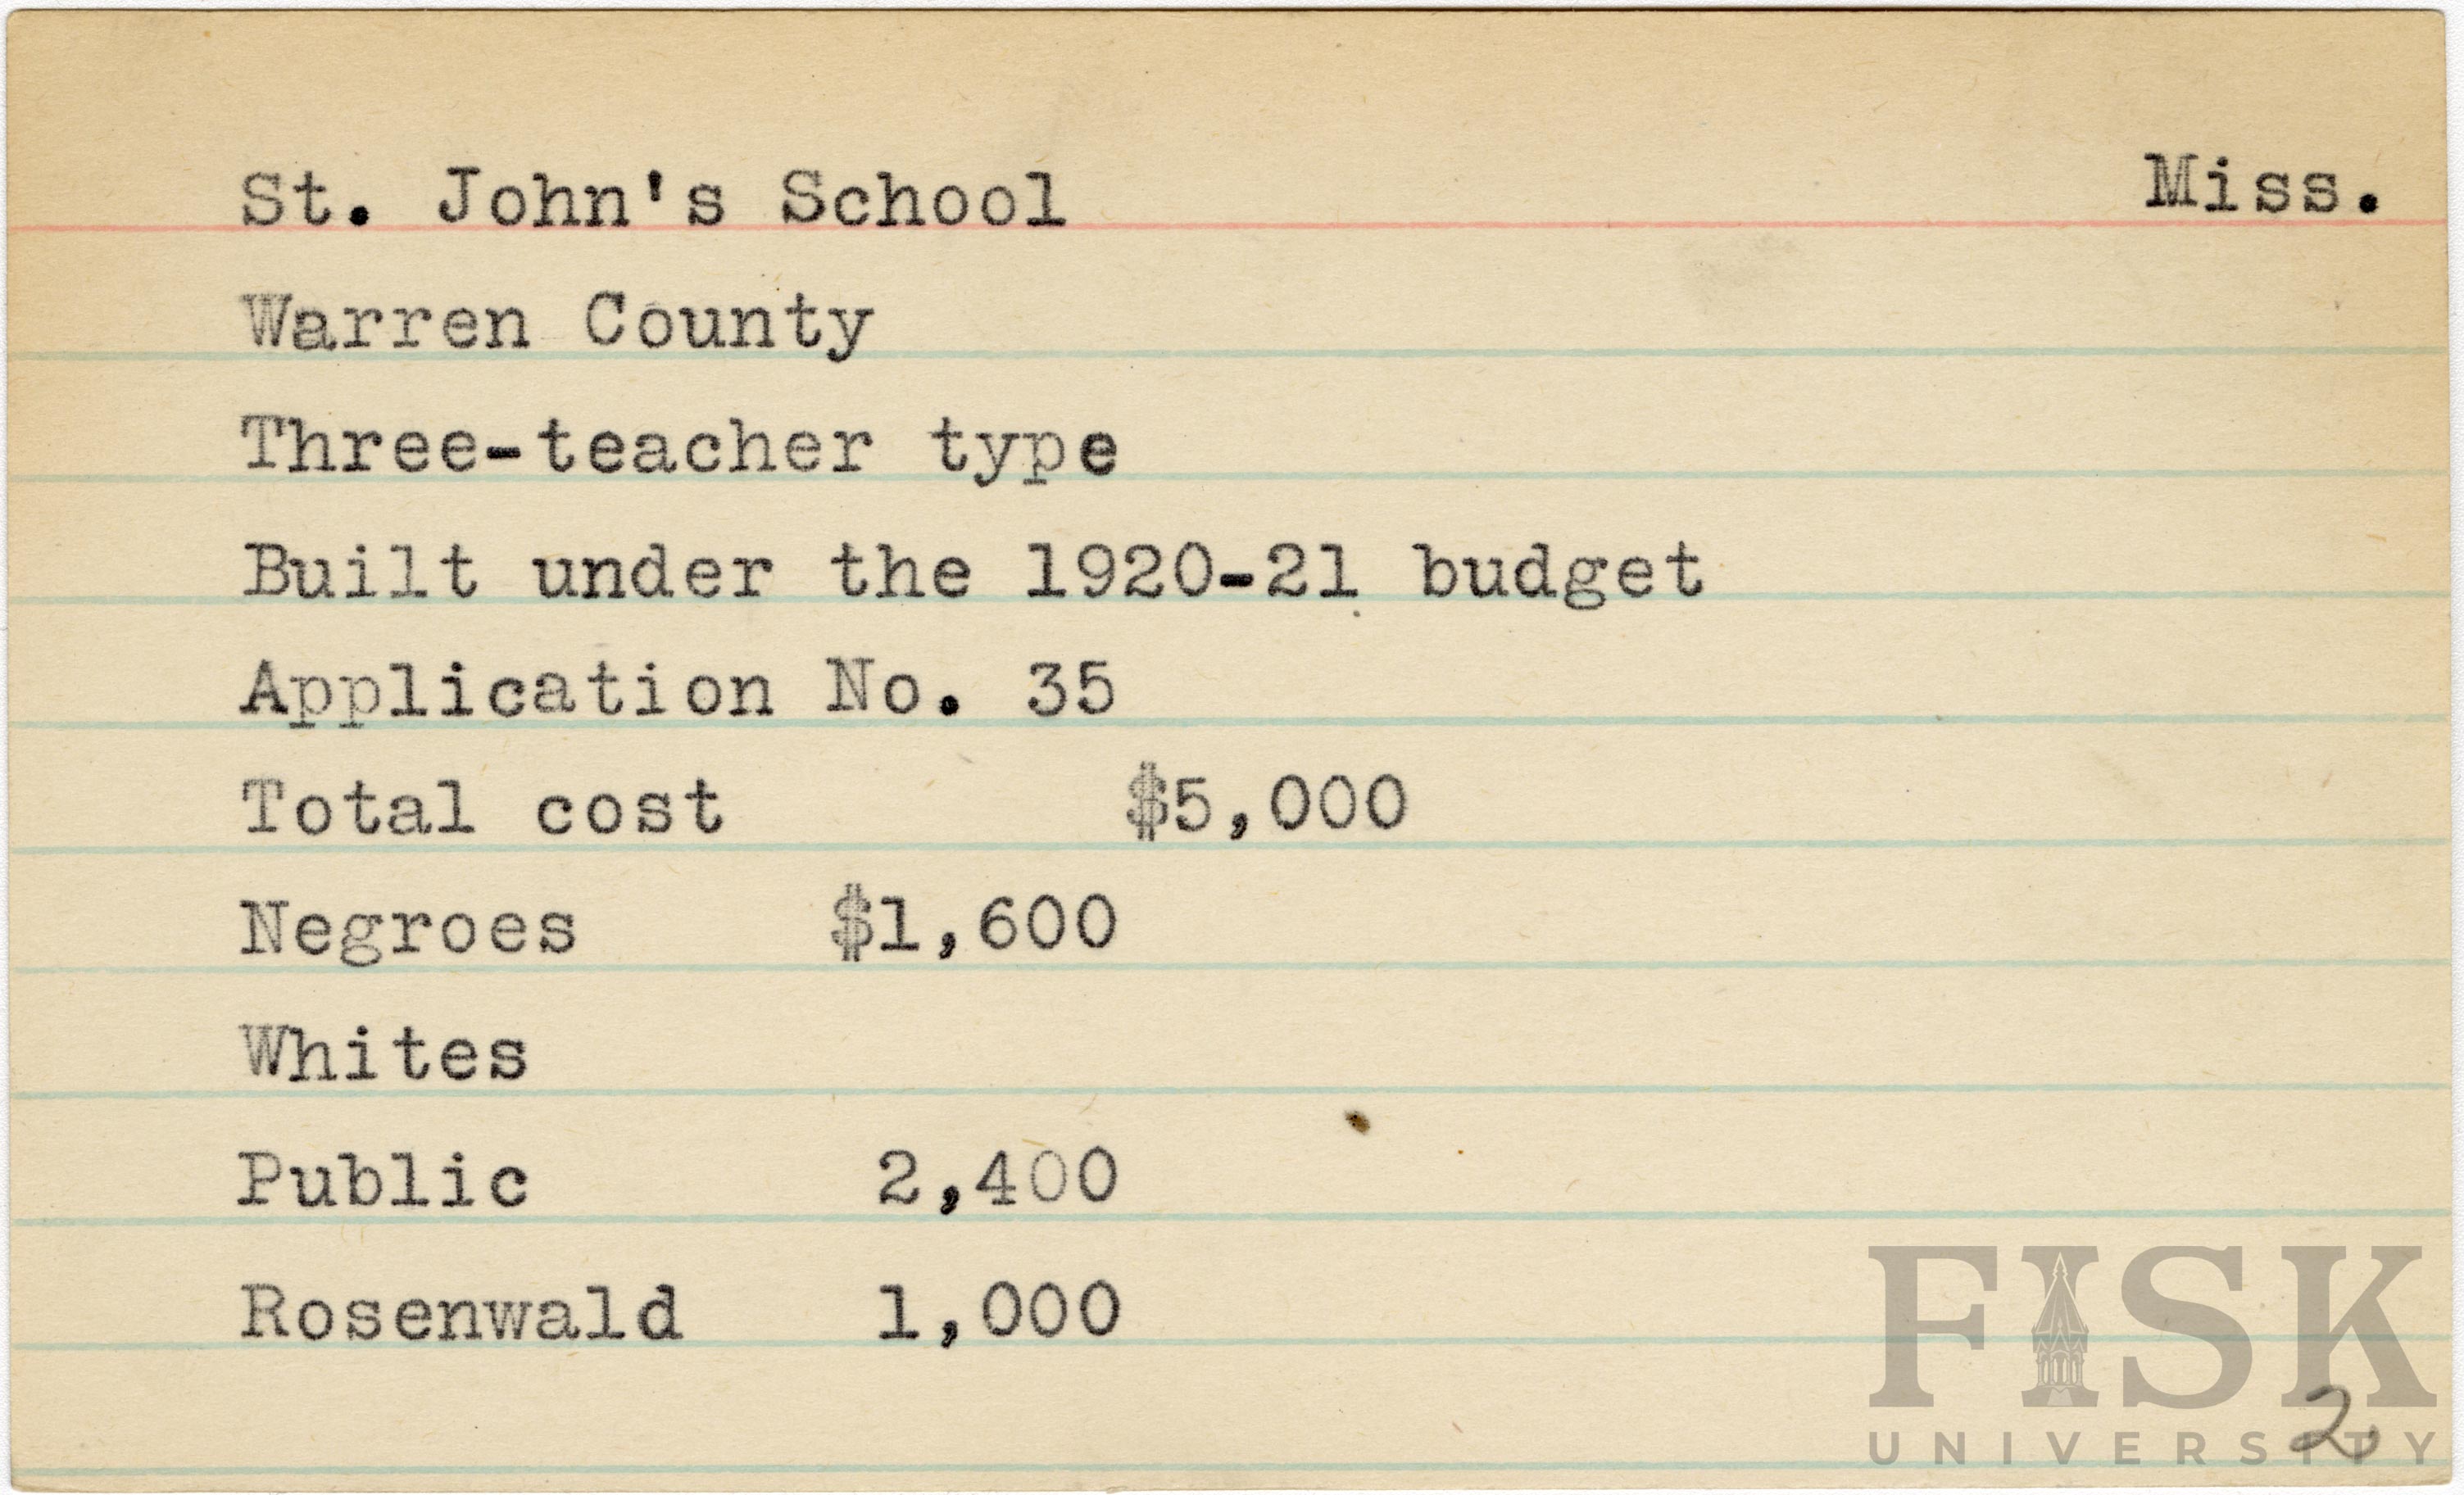 St. John's School Miss.
Warren County
Three-teacher type
Built under the 1920-21 budget
Application No. 35
Total cost $5,000
Negroes $1,600
Whites
Public 2,400
Rosenwald 1,000
FISK
UNIVERSITY
2